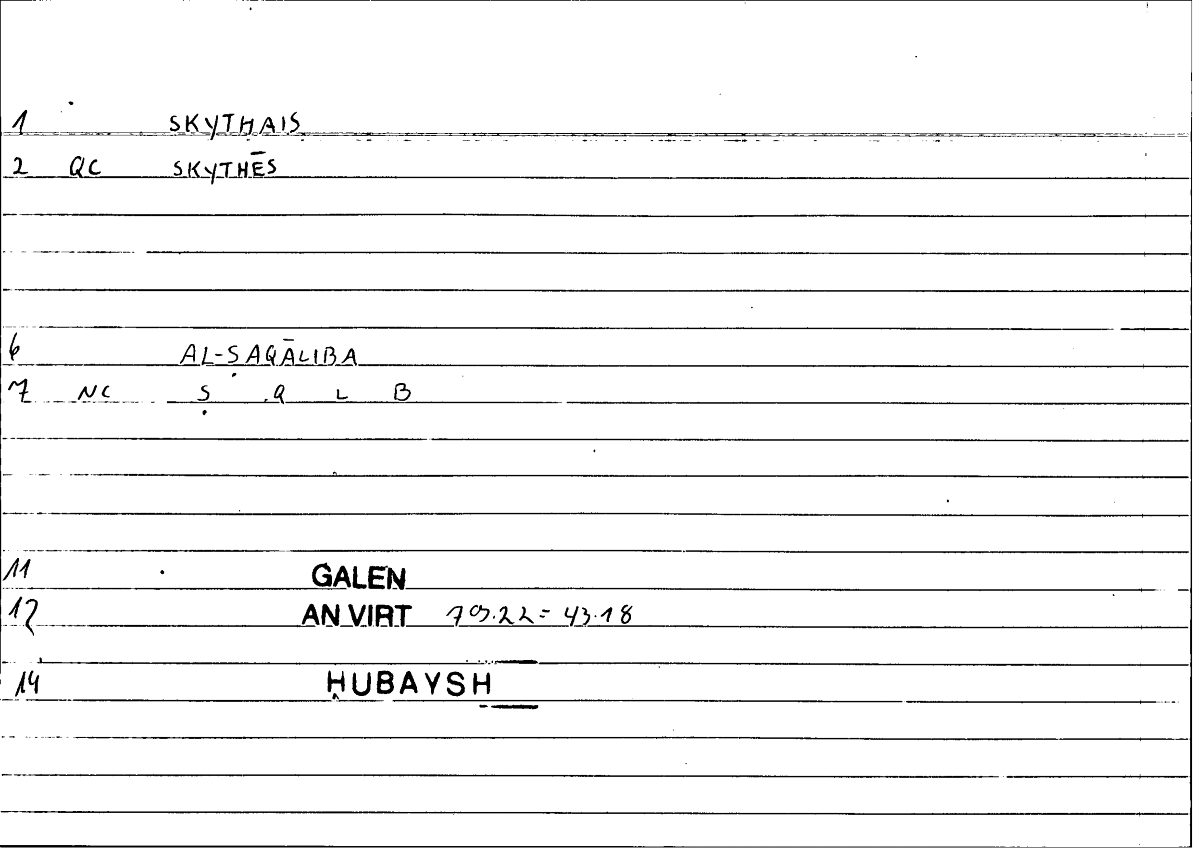 1 SKYTHAIS
2 QC SKYTHĒS
6 AL-ṢAQĀLIBA
7 NC Ṣ Q L B
11 GALEN
12 AN VIRT 79.22 = 43.18
14 ḤUBAYSH